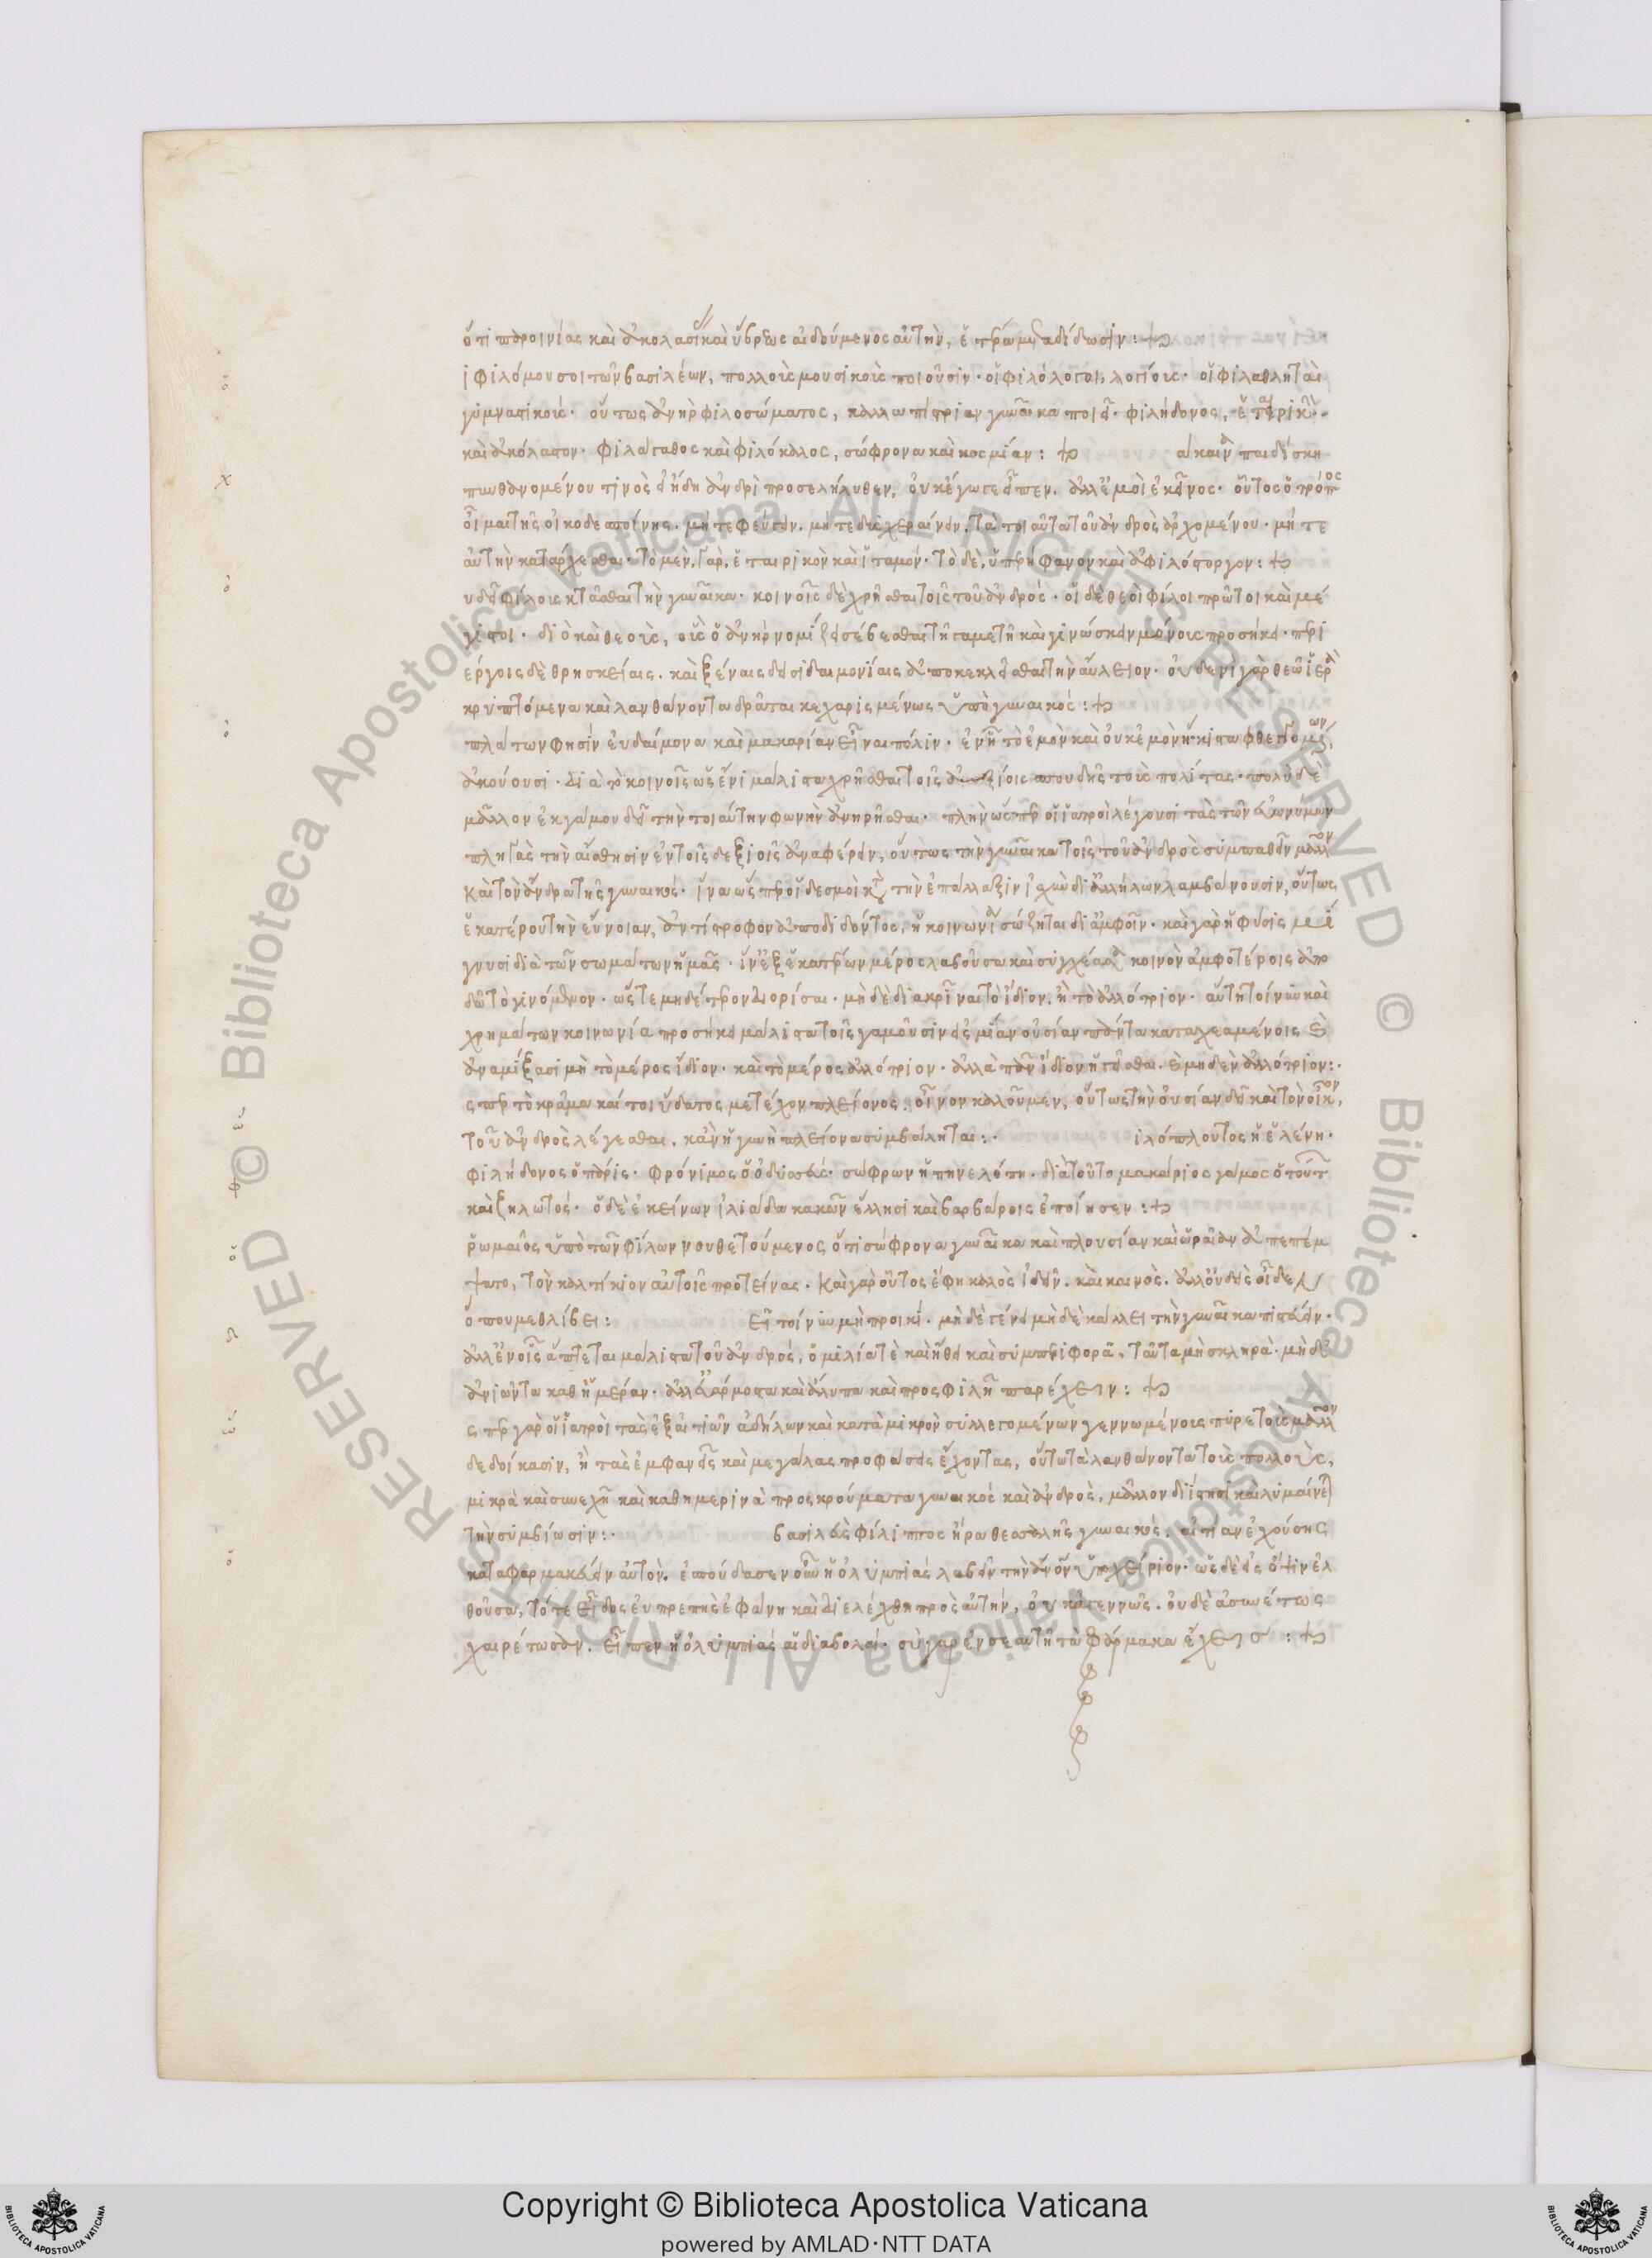 ὅτι παροινίας καὶ ἀκολασίας καὶ ὕβρεως αἰδούμενος αὐτὴν, ἑτέρα μεταδίδωσιν:
ὅ
ἱ φιλόμουσοι τῶν βασιλέων, πολλοὺς μουσικοὺς ποιοῦσιν· οἱ φιλόλογοι, λογίους· οἱ φιλαθληταὶ
γυμναστικούς· οὕτως ἀνὴρ φιλοσώματος, καλλωπίστριαν γυναῖκα ποιεῖ· φιλήδονος, ἑταιρικὴν
καὶ ἀκόλαστον· φιλάγαθος καὶ φιλόκαλος, σώφρονα καὶ κοσμίαν: άκαινα παιδίσκη
χ
πυνθανομένου τινὸς εἰ ἤδη ἀνδρὶ προσελήλυθεν, οὐκ ἔγωγε εἶπεν. ἀλλ' ἐμοὶ ἐκεῖνος· οὗτος ὁ τρόπος
οἶμαι τῆς οἰκοδεσποίνης. μήτε φεύγειν. μήτε δυσχεραίνειν. τὰ τοιαῦτα τοῦ ἀνδρὸς ἀρχομένου· μήτε
αὐτὴν κατάρχεσθαι· τὸ μὲν, γὰρ, ἑταιρικὸν καὶ ἰταμόν· τὸ δὲ, ὑπερήφανον καὶ ἀφιλόστοργον:
ὁ
υ δεῖ φίλους κτᾶσθαι τὴν γυναῖκα· κοινοῖς δὲ χρῆσθαι τοῖς τοῦ ἀνδρός· οἱ δὲ θεοὶ φίλοι πρῶτοι καὶ μέ
γιστοι· διὸ καὶ θεοὺς, οὓς ὁ ἀνὴρ νομίζει σέβεσθαι τῇ γαμετῇ καὶ γινώσκειν μόνους προσήκει· περι
έργοις δὲ θρησκείαις. καὶ ξέναις δεισιδαιμονίαις ἀποκεκλεῖσθαι τὴν αὔλειον· οὐδενὶ γὰρ θεῶ ἱερὰ
κρυπτόμενα καὶ λανθάνοντα δρᾶται κεχαρισμένως ὑπὸ γυναικός:
ὁ
πλάτων φησὶν εὐδαίμονα καὶ μακαρίαν εἶναι πόλιν· ἐν ᾗ τὸ ἐμὸν καὶ οὐκ ἐμὸν ἥκιστα φθεγγομένων
ἀκούουσι· διὰ τὸ κοινοῖς ὡς ἔνι μάλιστα χρῆσθαι τοῖς ἀξίοις σπουδῆς τοὺς πολίτας· πολὺ δὲ
μᾶλλον ἐκ γάμου δεῖ τὴν τοιαύτην φωνὴν ἀνηρῆσθαι· πλὴν ὥσπερ οἱ ἰατροὶ λέγουσι τὰς τῶν εὐωνύμων
πληγὰς τὴν αἴσθησιν ἐν τοῖς δεξιοῖς ἀναφέρειν, οὕτως τὴν γυναῖκα τοῖς τοῦ ἀνδρὸς συμπαθεῖν μᾶλλον
καὶ τὸν ἄνδρα τῆς γυναικός· ἵνα ὥσπερ οἱ δεσμοὶ κατὰ τὴν ἐπάλλαξιν ἰσχὺν δι' ἀλλήλων λαμβάνουσιν, οὕτως
ἑκατέρου τὴν εὔνοιαν, ἀντίστροφον ἀποδιδόντος, ἡ κοινωνία σώζηται δι' ἀμφοῖν· καὶ γὰρ ἡ φύσις μί
γνυσι διὰ τῶν σωμάτων ἡμᾶς· ἵν' ἐξ ἑκατέρων μέρος λαβοῦσα καὶ συγχέασα κοινὸν ἀμφοτέροις ἀπο
δῶ τὸ γινόμενον· ὥστε μηδέτερον διορίσαι· μηδὲ διακρῖναι τὸ ἴδιον. ἢ τὸ ἀλλότριον· αὕτη τοίνυν καὶ
χρημάτων κοινωνία προσήκει μάλιστα τοῖς γαμοῦσιν εἰς μίαν οὐσίαν πάντα καταχεαμένοις καὶ
ἀναμίξασι μὴ τὸ μέρος ἴδιον· καὶ τὸ μέρος ἀλλότριον· ἀλλὰ πᾶν ἴδιον ἡγεῖσθαι. καὶ μηδὲν ἀλλότριον:
ὥ
σπερ τὸ κρᾶμα καίτοι ὕδατος μετέχον πλείονος. οἶνον καλοῦμεν, οὕτως τὴν οὐσίαν δεῖ καὶ τὸν οἶκον,
τοῦ ἀνδρὸς λέγεσθαι. κἂν ἡ γυνὴ πλείονα συμβάληται: ιλόπλουτος ἡ ἑλένη·
φ
φιλήδονος ὁ πάρις· φρόνιμος ὁ ὀδυσσεύς· σώφρων ἡ πηνελόπη· διὰ τοῦτο μακάριος γάμος ὁ τούτων
καὶ ζηλωτός· ὁ δὲ ἐκείνων ἰλιάδα κακῶν ἕλλησι καὶ βαρβάροις ἐποίησεν:
ὁ
ῥωμαῖος ὑπὸ τῶν φίλων νουθετούμενος ὅτι σώφρονα γυναῖκα καὶ πλουσίαν καὶ ὡραίαν ἀπεπέμ
ψατο, τὸν κάλτικιον αὐτοῖς προτείνας. καὶ γὰρ οὗτος ἔφη καλὸς ἰδεῖν. καὶ καινὸς. ἀλλ' οὐδεὶς οἶδεν
ὅπου με θλίβει: Εἴ τοίνυν μὴ προικὶ. μηδὲ γένει μηδὲ κάλλει τὴν γυναῖκα πιστεύειν·
ἀλλ' ἐν οἷς ἅπτεται μάλιστα τοῦ ἀνδρός, ὁμιλία τὲ καὶ ἤθει καὶ συμπεριφορᾶ. ταῦτα μὴ σκληρὰ· μηδ'
ἀνιῶντα καθ' ἡμέραν· ἀλλ' εὐάρμοστα καὶ ἄλυπα καὶ προσφιλῆ παρέχειν:
ὥ
σπερ γὰρ οἱ ἰατροὶ τοὺς ἐξ αἰτιῶν ἀδήλων καὶ κατὰ μικρὸν συλλεγομένων γεννωμένους πυρετοὺς μᾶλλον
δεδοίκασιν, ἢ τοὺς ἐμφανεῖς καὶ μεγάλας προφάσεις ἔχοντας, οὕτω τὰ λανθάνοντα τοὺς πολλοὺς,
μικρὰ καὶ συνεχῆ καὶ καθημερινὰ προσκρούματα γυναικός καὶ ἀνδρὸς, μᾶλλον διΐστησι καὶ λυμαίνεται
τὴν συμβίωσιν: βασιλεὺς φίλιππος ἤρα θεσσαλῆς γυναικός. αἰτίαν ἐχούσης
ὁ
καταφαρμακεύειν αὐτὸν. ἐσπούδασεν οὖν ἡ ὀλυμπιὰς λαβεῖν τὴν ἄνθρωπον ὑποχείριον· ὡς δὲ εἰς ὄψιν ἐλ
θοῦσα, τό τε εἶδος εὐπρεπὴς ἐφάνη καὶ διελέχθη πρὸς αὐτὴν, οὐκ ἀγεννῶς. οὐδὲ ἀσυνέτως
χαιρέτωσαν. εἶπεν ἡ ὀλυμπιὰς αἱ διαβολαί· σὺ γὰρ ἐν σεαυτῇ τὰ φάρμακα ἔχεις:
© Biblioteca Apostolica Vaticana ALL RIGHTS RESERVED
© Biblioteca Apostolica Vaticana ALL RIGHTS RESERVED
Copyright © Biblioteca Apostolica Vaticana
powered by AMLAD·NTT DATA
BIBLIOTECA APOSTOLICA VATICANA
BIBLIOTECA APOSTOLICA VATICANA